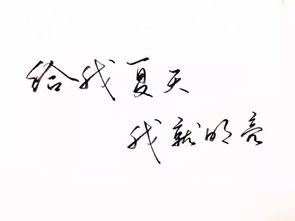 给我夏天
我就明亮